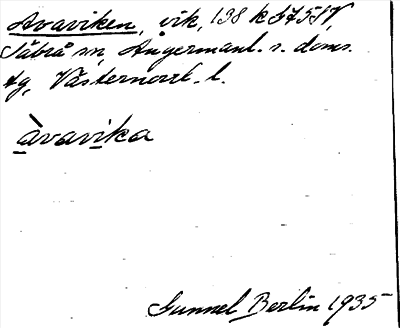 Avaviken, vik, 138 k S75SV,
Säbrå sn, Ångermanl. s. doms.
tg, Västernorrl. l.
àvavika
Gunnel Berlin 1935